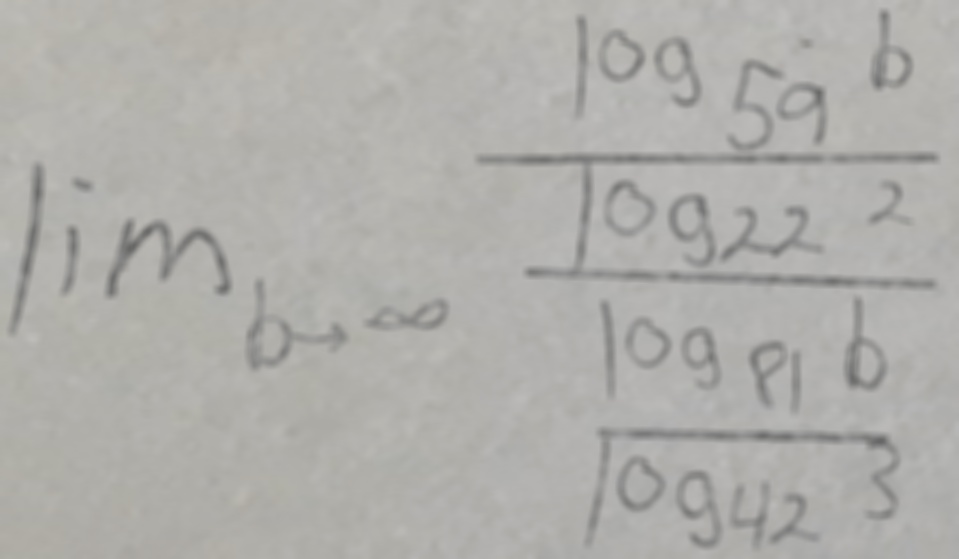 lim b→∞
log 59 b
log 22 2
log 81 b
log 42 3